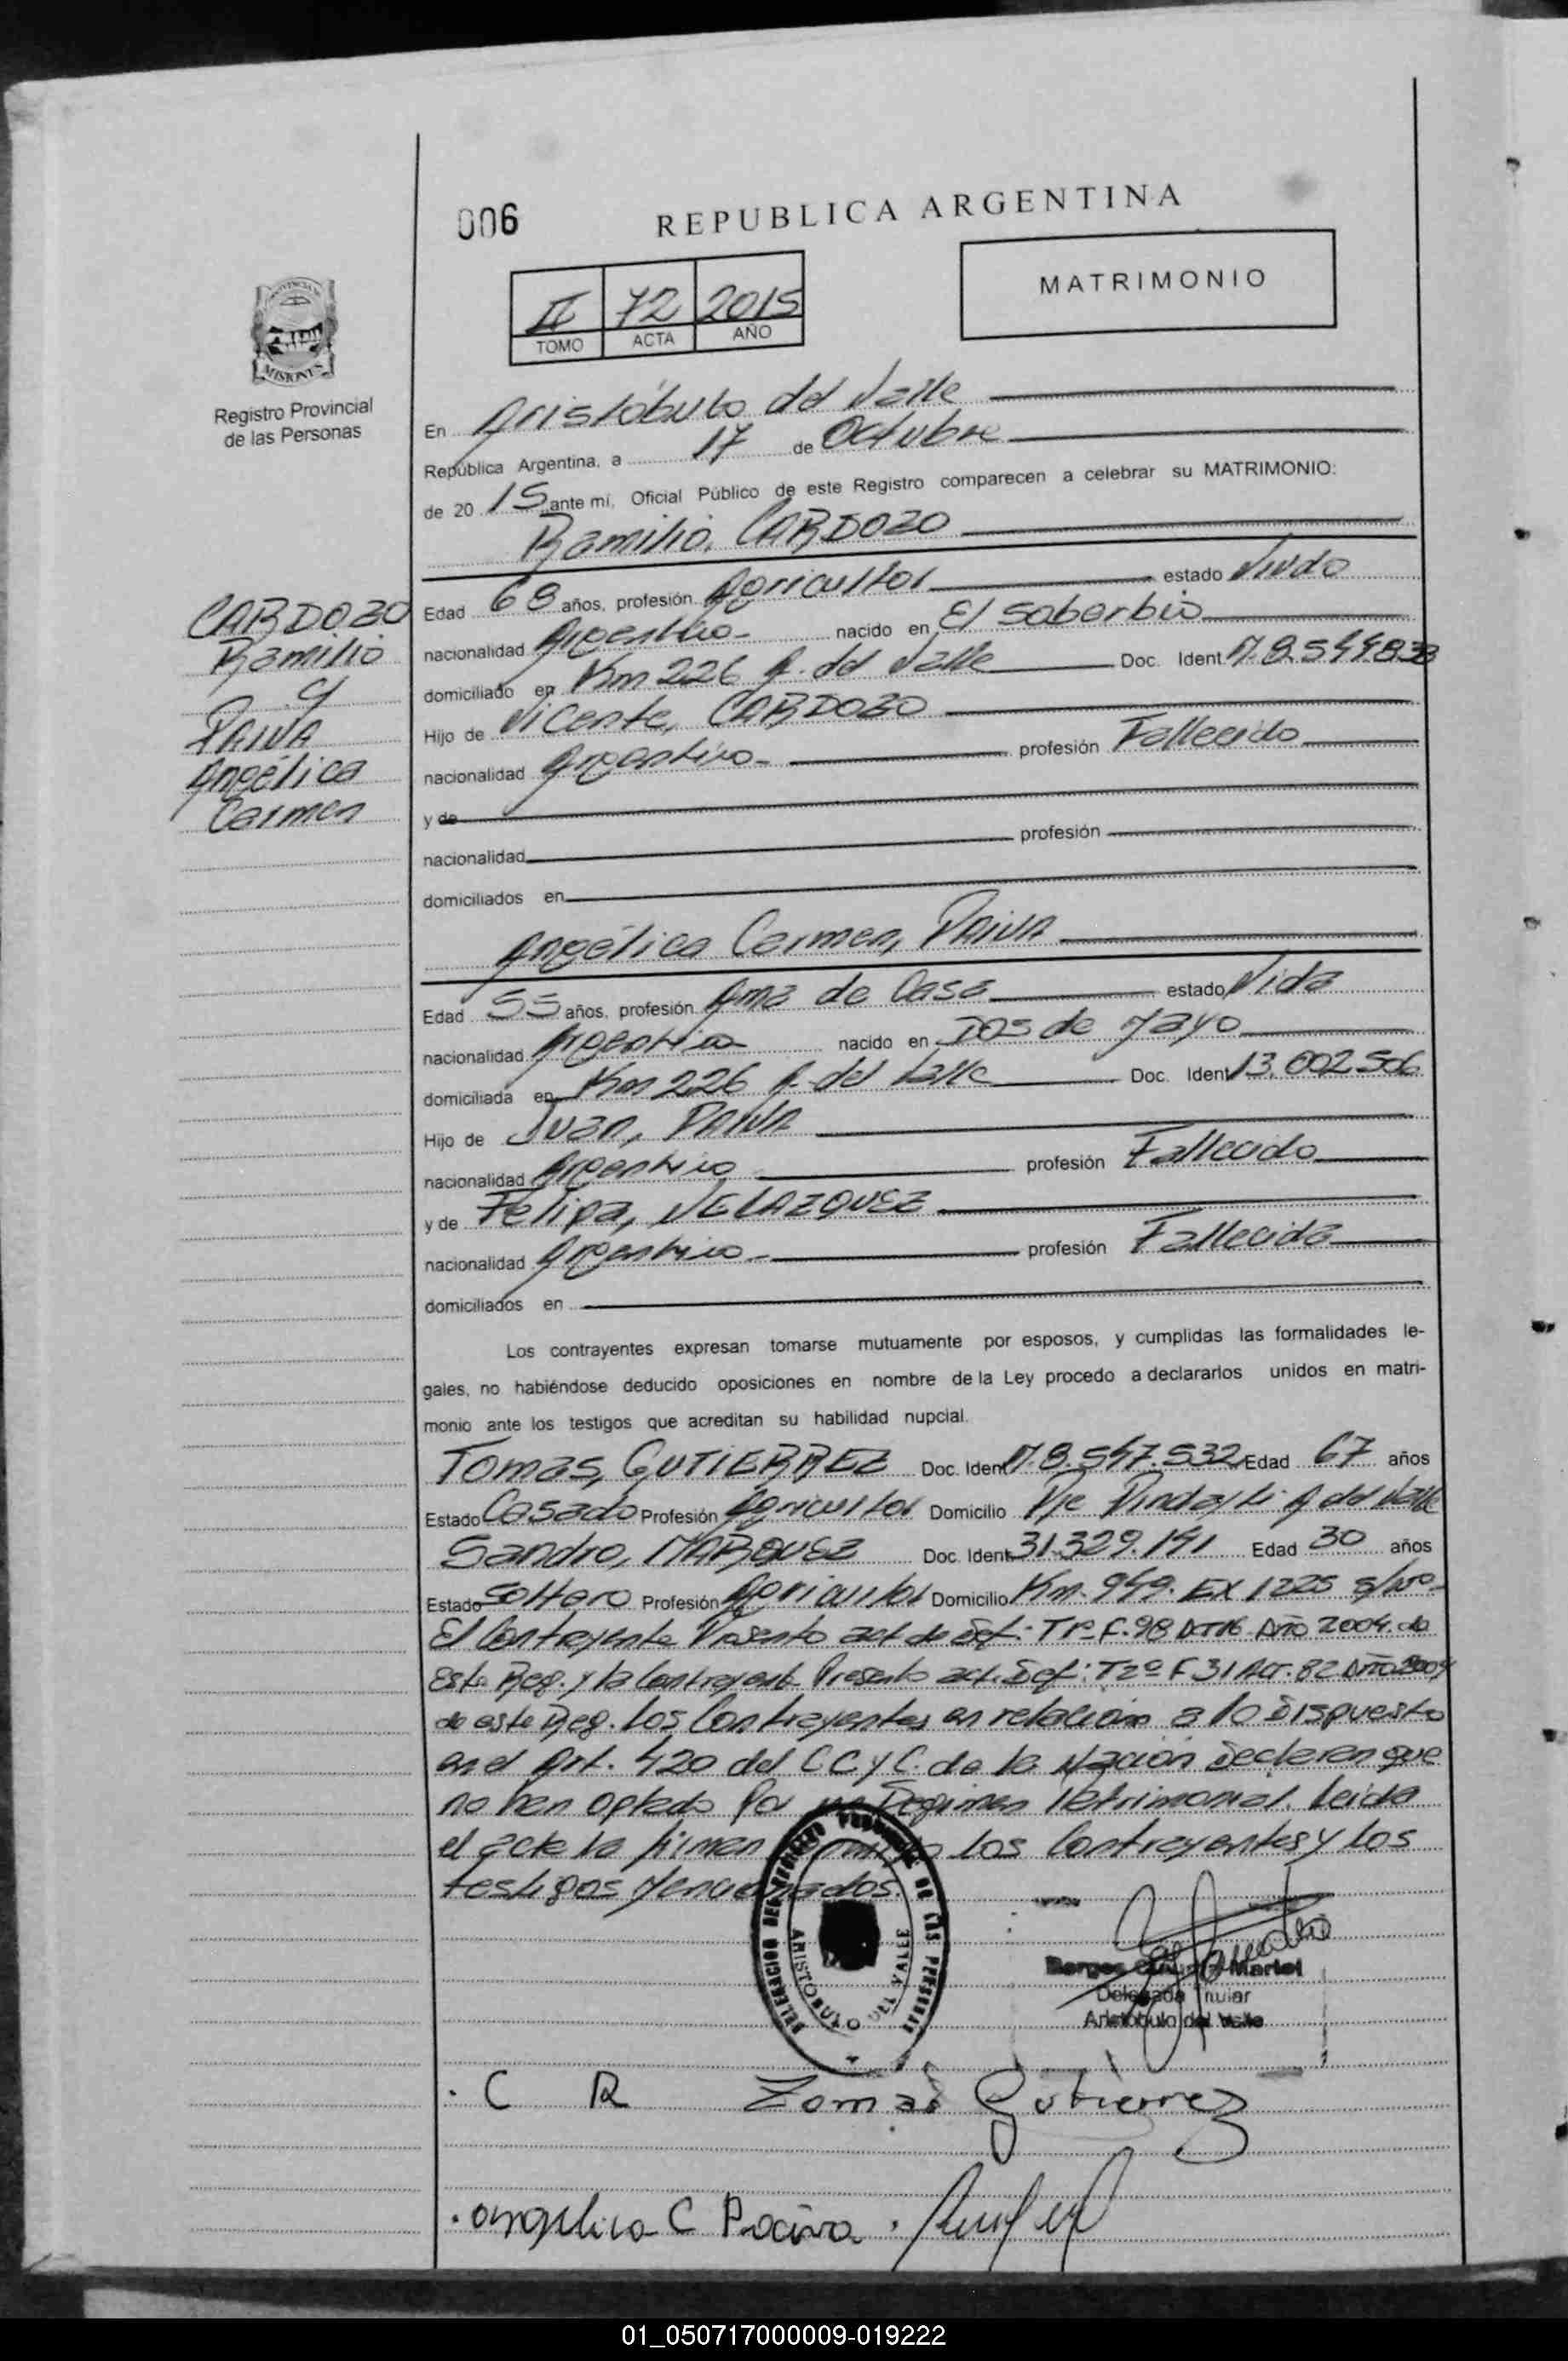 006
REPUBLICA ARGENTINA
MATRIMONIO
II 72 2015
TOMO ACTA AÑO
PROVINCIA DE
MISIONES
Registro Provincial
de las Personas
En Aristóbulo del Valle
República Argentina, a 17 de Octubre
de 20 15 ante mí, Oficial Público de este Registro comparecen a celebrar su MATRIMONIO:
Ramilio, CARDOZO
CARDOZO
Ramilio
y
PAIVA
Angélica
Carmen
Edad 68 años, profesión Agricultor estado Viudo
nacionalidad Argentino nacido en El Soberbio
domiciliado en Km 226 A. del Valle Doc. Ident M.8.544.838
Hijo de Vicente, CARDOZO
nacionalidad Argentino profesión Fallecido
y de
nacionalidad profesión
domiciliados en
Angélica Carmen, PAIVA
Edad 55 años, profesión Ama de Casa estado Vida
nacionalidad Argentina nacido en Dos de Mayo
domiciliada en Km 226 A. del Valle Doc. Ident 13.002.506
Hijo de Juan, PAIVA
nacionalidad Argentino profesión Fallecido
y de Felipa, VELAZQUEZ
nacionalidad Argentino profesión Fallecida
domiciliados en
Los contrayentes expresan tomarse mutuamente por esposos, y cumplidas las formalidades le-
gales, no habiéndose deducido oposiciones en nombre de la Ley procedo a declararlos unidos en matri-
monio ante los testigos que acreditan su habilidad nupcial.
Tomas, GUTIERREZ Doc. Ident M.8.547.532 Edad 67 años
Estado Casado Profesión Agricultor Domicilio Pje Pindayti A del Valle
Sandro, MARQUEZ Doc. Ident 31.329.191 Edad 30 años
Estado Soltero Profesión Agricultor Domicilio Km. 949. EX 1225 s/nº
El Contrayente Presento act de Def: Tº F.98 Año 2004. de
Este Reg. y la Contrayente Presento act. Def: T2º F31 Act. 82 Año 2009
de este Reg. Los Contrayentes en relación a lo Dispuesto
en el Art. 420 del C C y C. de la Nación Declaren que
no han optado Por Regimen Patrimonial. Leida
el acta la firman los Contrayentes y los
testigos Mencionados.
DELEGACION DEL REGISTRO PROVINCIAL DE LAS PERSONAS
ARISTOBULO DEL VALLE
Borges Mariel
Delegada Titular
Aristóbulo del Valle
. C R Zomas Gutierrez
. angelica C Paciva .
01_050717000009-019222